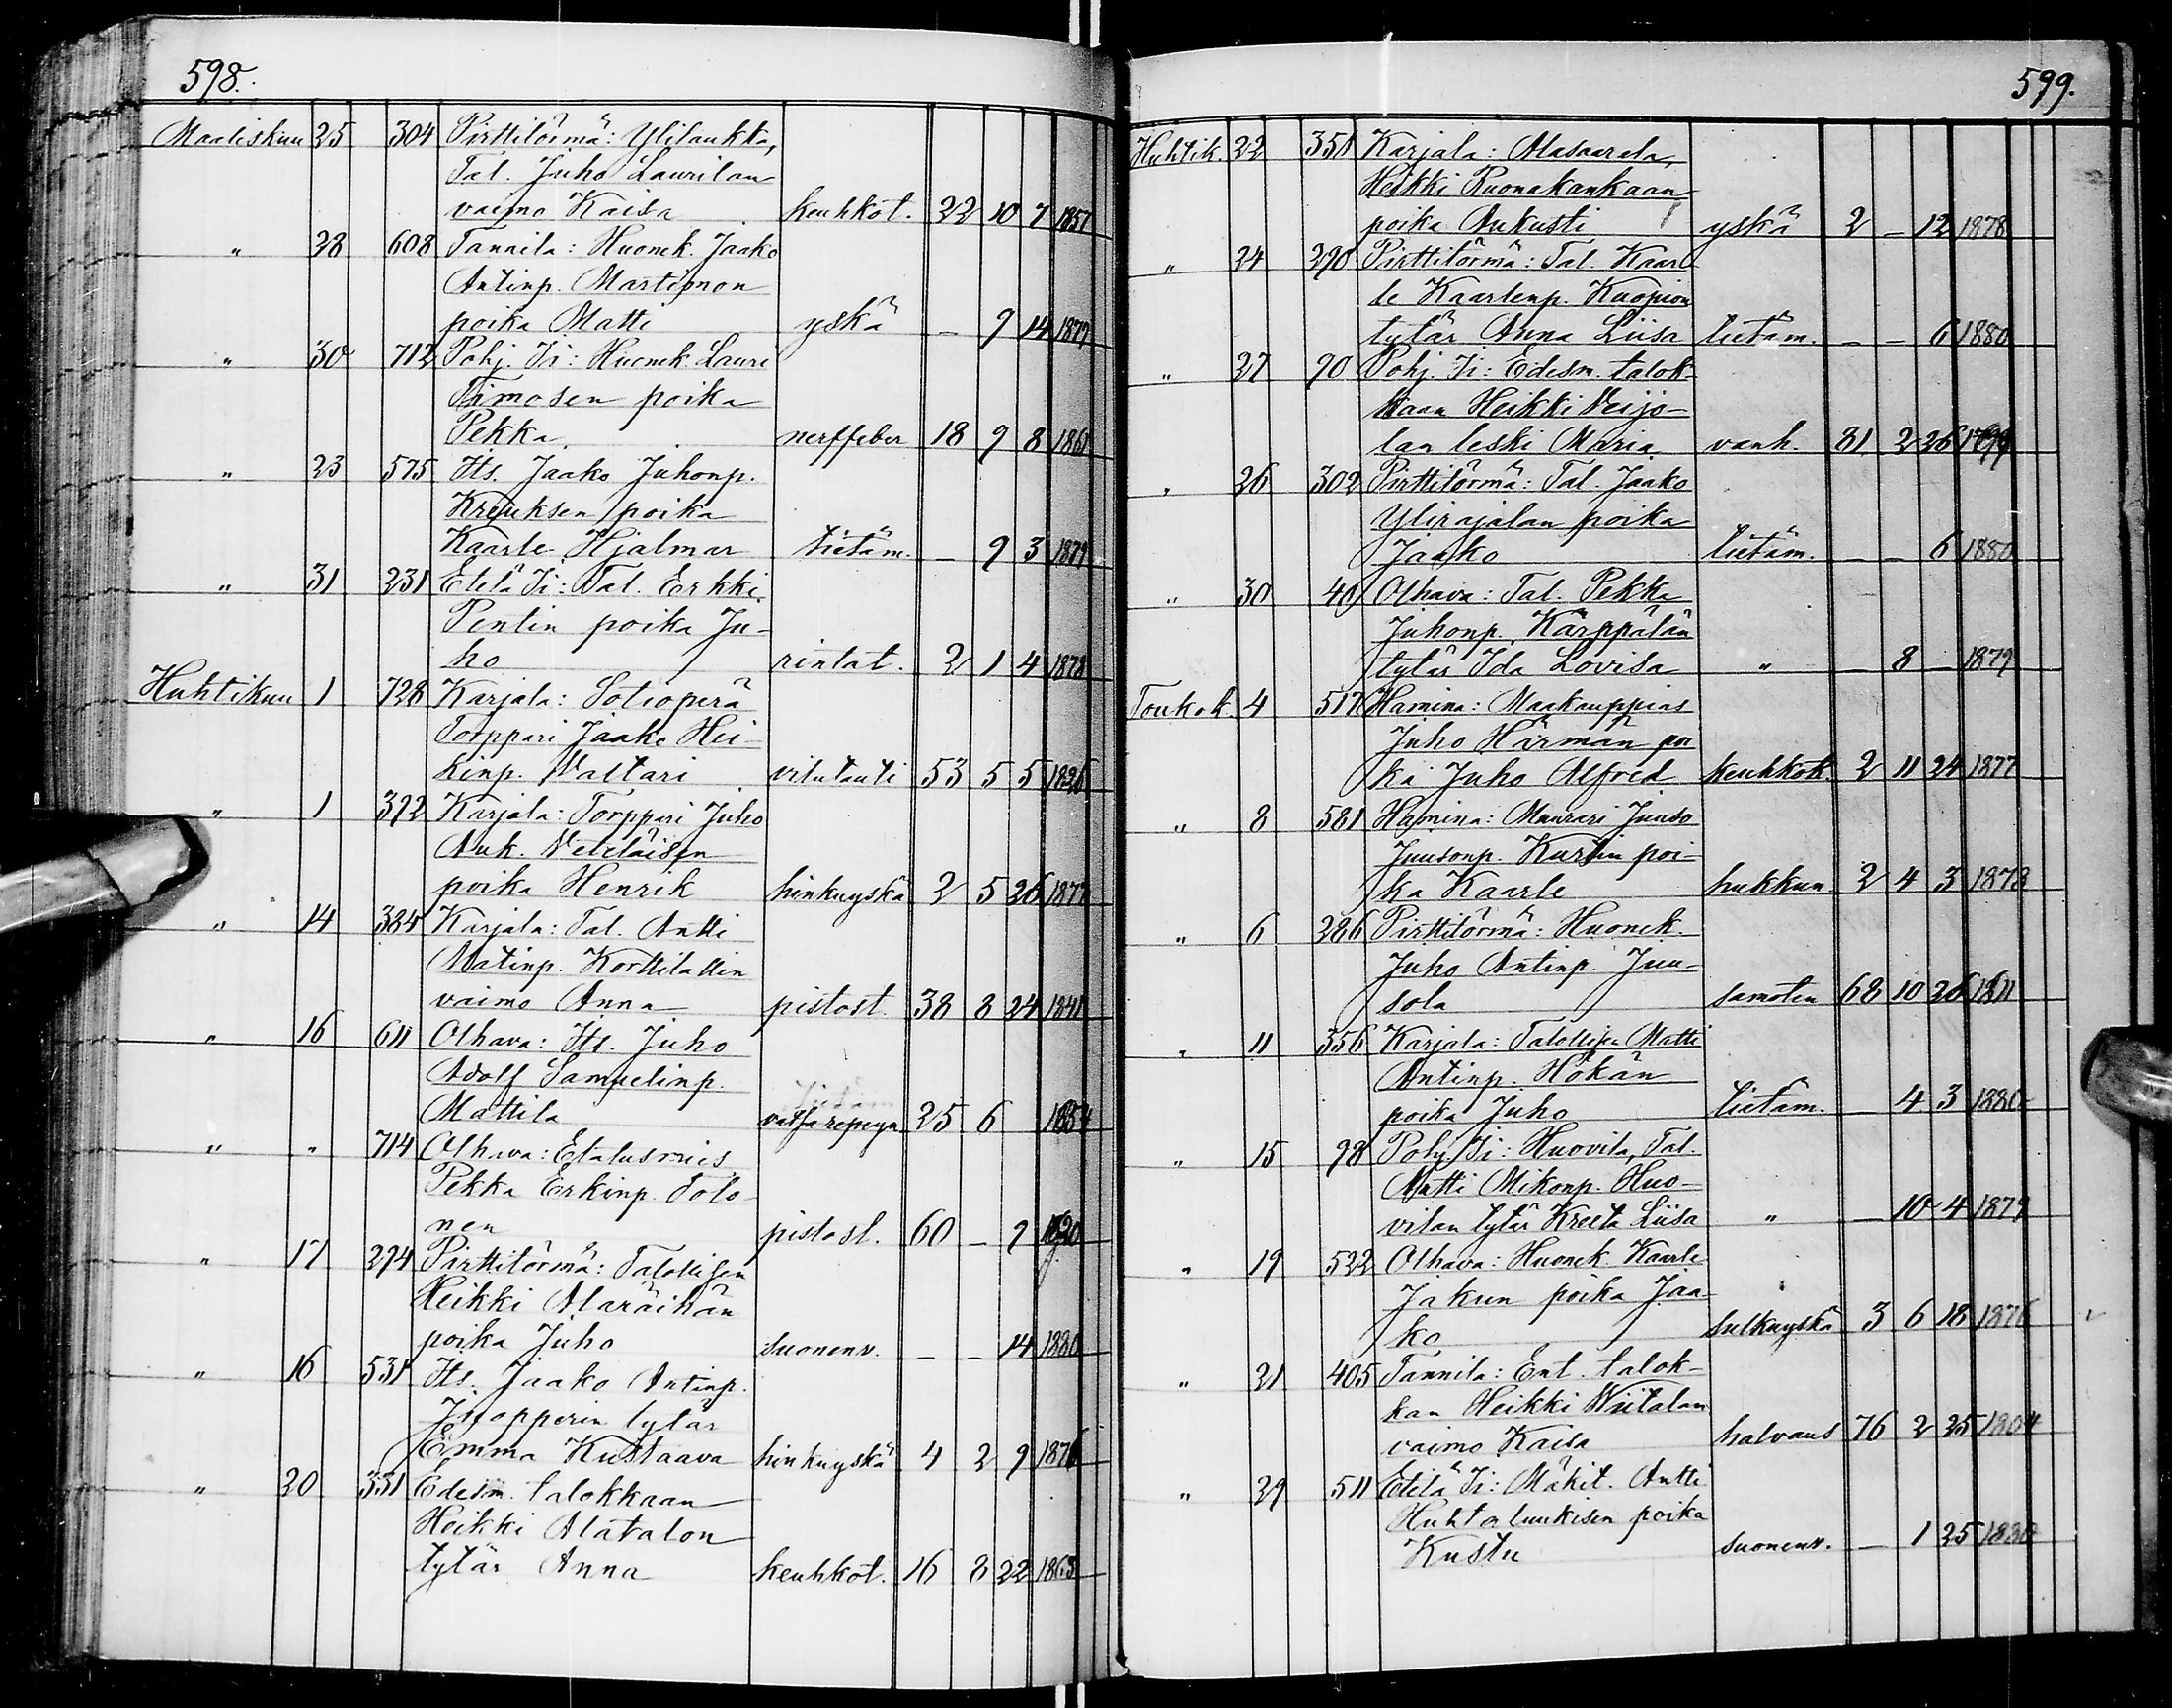 598.
Maaliskuu 25 304 Pirttitörmä: Ylilaukka,
Tal. Juho Laurilan
vaimo Kaisa keuhkot. 22 10 7 1857
" 28 608 Tannila: Huonek. Jaako
Antinp. Martimon
poika Matti yskä – 9 14 1879
" 30 712 Pohj. Ii: Huonek. Lauri
Timosen poika
Pekka nerffeber 18 9 8 1861
" 23 575 Its. Jaako Juhonp.
Kreuksen poika
Kaarle Hjalmar tietäm. – 9 3 1879
" 31 231 Etelä Ii: Tal. Erkki
Pentin poika Ju-
ho rintat. 2 1 4 1878
Huhtikuu 1 728 Karjala: Sotioperä
Torppari Jaako Hei-
kinp. Valtari vilutauti 53 5 5 1826
" 1 392 Karjala: Torppari Juho
Auk. Veteläisen
poika Henrik hinkuyskä 2 5 26 1877
" 14 384 Karjala: Tal. Antti
Matinp. Korttilattin
vaimo Anna pistost. 38 8 24 1841
" 16 611 Olhava: Its. Juho
Adolf Samuelinp.
Mattila 25 6 1854
" " 714 Olhava: Etalusmies
Pekka Erkinp. Tolo-
nen pistost. 60 – 9 1820
" 17 294 Pirttitörmä: Talollisen
Heikki Alaräikän
poika Juho suonenv. – – 14 1880
" 16 531 Its. Jaako Antinp.
Isopperin tytär
Emma Kustaava hinkuyskä 4 2 9 1876
" 20 331 Edesm. talokkaan
Heikki Alatalon
tytär Anna keuhkot. 16 8 22 1863
599.
Huhtik. 22 351 Karjala: Alasaarela,
Heikki Ruonakankaan
poika Aukusti yskä 2 – 12 1878
" 24 290 Pirttitörmä: Tal. Kaar-
le Kaarlenp. Kuopion
tytär Anna Liisa tietäm. – – 6 1880
" 27 90 Pohj. Ii: Edesm. talok-
kaan Heikki Veijo-
lan leski Maria vanh. 81 2 26 1799
" 26 302 Pirttitörmä: Tal. Jaako
Ylirajalan poika
Jaako tietäm. – – 6 1880
" 30 40 Olhava: Tal. Pekka
Juhonp. Kärppälän
tytär Ida Lovisa " – 8 – 1879
Toukok. 4 517 Hamina: Maakauppias
Juho Härmän poi
ka Juho Alfred keuhkok. 2 11 24 1877
" 8 581 Hamina: Muurari Juuso
Juusonp. Kurtin poi-
ka Kaarle hukkun. 2 4 3 1878
" 6 286 Pirttitörmä: Huonek.
Juho Antinp. Juu-
sola samoten 68 10 26 1811
" 11 356 Karjala: Talollisen Matti
Antinp. Hökän
poika Juho tietäm. – 4 3 1880
" 15 98 Pohj. Ii: Huovila, Tal.
Matti Mikonp. Huo-
vilan tytär Kreeta Liisa " – 10 4 1879
" 19 522 Olhava: Huonek. Kaarle
Jakun poika Jaa-
ko hulkuyskä 3 6 18 1876
" 21 405 Tannila: Ent. talok-
kan Heikki Wiitalan
vaimo Kaisa halvaus 76 2 25 1804
" 29 511 Etelä Ii: Mäkit. Antti
Huhtaluukisen poika
Kustu suonenv. – 1 25 1880